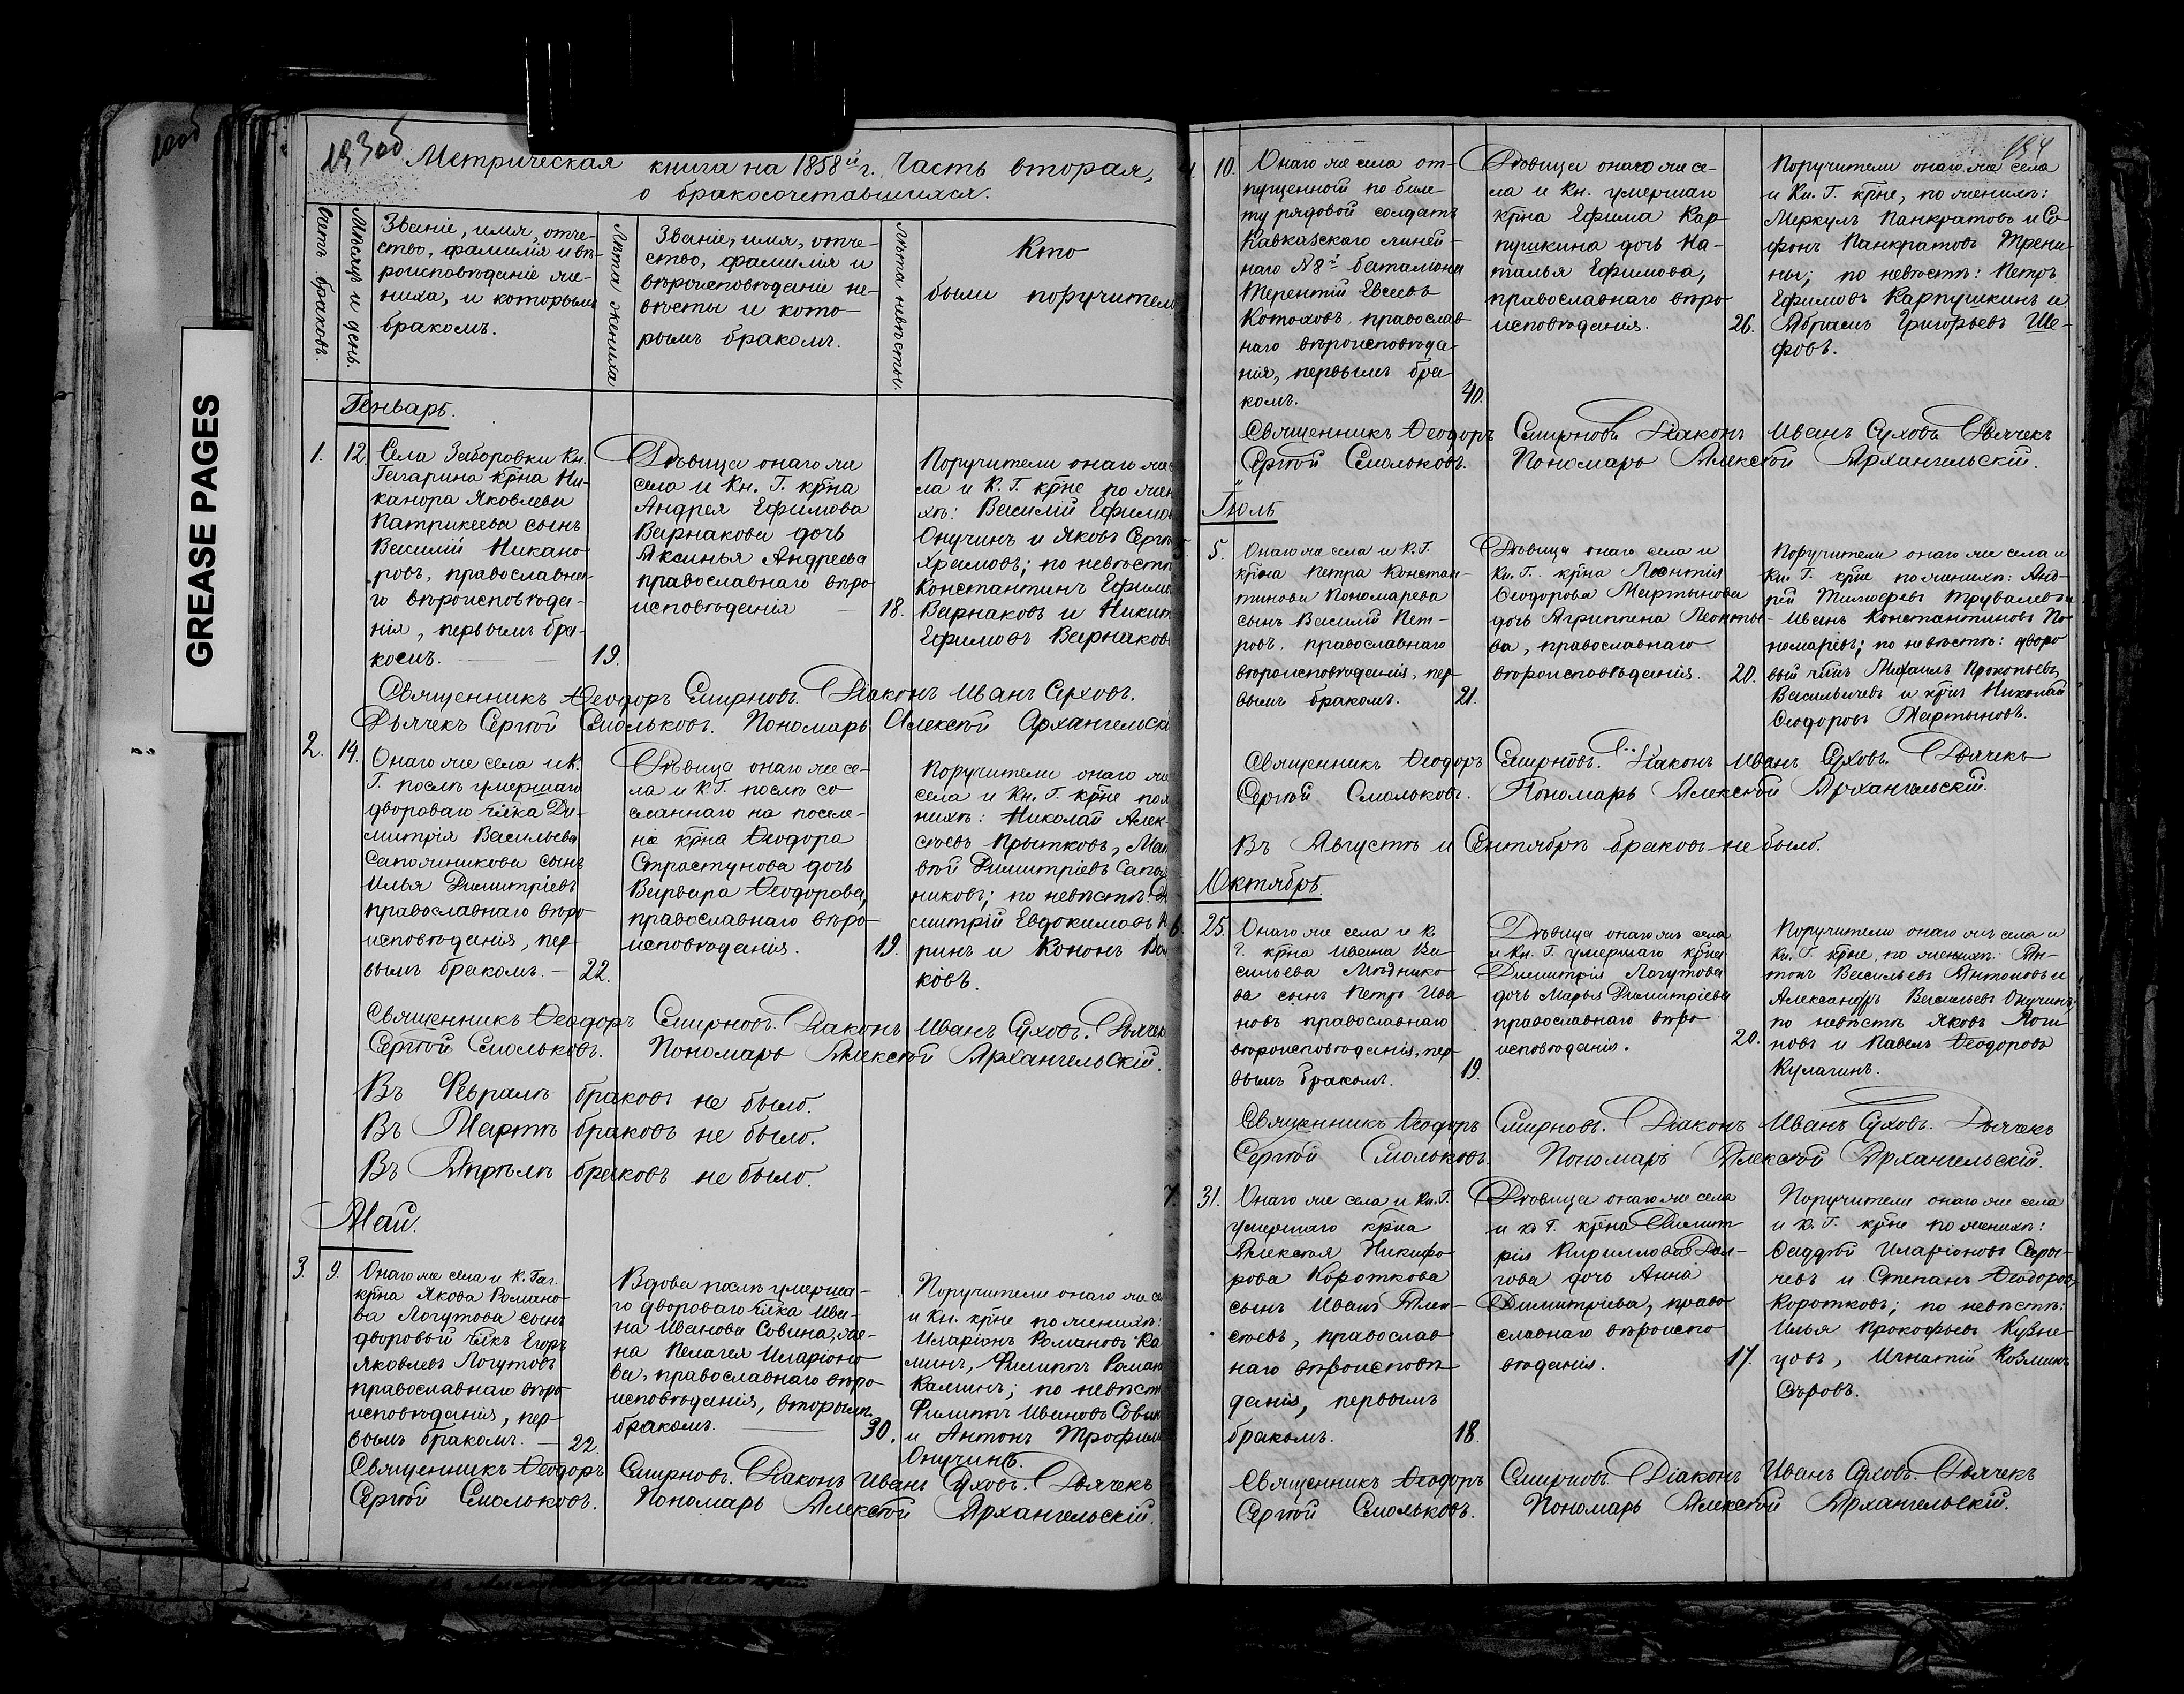 GREASE PAGES
193об
Метрическая книга на 1858й г. Часть вторая,
о бракосочетавшихся.
Счетъ браковъ.
Мѣсяцъ и день.
Званіе, имя, отче-
ство, фамилія и вѣ-
роисповѣданіе же-
ниха, и которымъ
бракомъ.
Лѣта жениха
Званіе, имя, отче-
ство, фамилія и
вѣроисповѣданіе не-
вѣсты и кото-
рымъ бракомъ.
Лѣта невѣсты.
Кто
были поручители
Генварь.
1. 12.
Села Заборовки Кн.
Гагарина крⷭ҇на Ни-
канора Яковлева
Патрикеева сынъ
Василій Никано-
ровъ, православна-
го вѣроисповѣда-
нія, первымъ бра-
комъ.
19.
Дѣвица онаго же
села и Кн. Г. крⷭ҇на
Андрея Ефимова
Варнакова дочь
Аксинья Андреева
православнаго вѣро-
исповѣданія
18.
Поручители онаго же се
ла и К. Г. крⷭ҇не по жен
хѣ: Василій Ефимов
Онучинъ и Яковъ Сергѣ
Храмовъ; по невѣстѣ
Константинъ Ефимо
Варнаковъ и Никит
Ефимовъ Варнаковъ
Священникъ Ѳеодоръ Смирновъ. Діаконъ Иванъ Суховъ.
Дьячекъ Сергѣй Смольковъ. Пономарь Алексѣй Архангельскі
2. 14.
Онаго же села и К.
Г. послѣ умершаго
двороваго члка Ди-
митрія Васильева
Сапожникова сынъ
Илья Димитріевъ
православнаго вѣро-
исповѣданія, пер-
вымъ бракомъ.
22.
Дѣвица онаго же се-
ла и К Г. послѣ со-
сланнаго на поселе-
ніе крⷭ҇на Ѳеодора
Страстунова дочь
Варвара Ѳеодорова,
православнаго вѣро-
исповѣданія.
19.
Поручители онаго же
села и Кн. Г. крⷭ҇не по ж
нихѣ: Николай Алек-
сѣевъ Прытковъ, Мат
вѣй Димитріевъ Сапож
никовъ; по невѣстѣ: Ди
митрій Евдокимовъ
ринъ и Кононъ
ковъ.
Священникъ Ѳеодоръ Смирновъ. Діаконъ Иванъ Суховъ. Дьячек
Сергѣй Смольковъ. Пономарь Алексѣй Архангельскій.
Въ Февралѣ браковъ не было.
Въ Мартѣ браковъ не было.
Въ Апрѣлѣ браковъ не было.
Май.
3. 9.
Онаго же села и К. Гаг.
крⷭ҇на Якова Романо-
ва Логутова сынъ
дворовый члкъ Егоръ
Яковлевъ Логутовъ
православнаго вѣро-
исповѣданія, пер-
вымъ бракомъ.
22.
Вдова послѣ умерша-
го двороваго члка Ива-
на Иванова Савина, же-
на Пелагея Иларіоно-
ва, православнаго вѣро-
исповѣданія, вторымъ
бракомъ.
30.
Поручители онаго же се
и Кн. крⷭ҇не по женихѣ:
Иларіонъ Романовъ Ка
линъ, Филиппъ Роман
Калинъ; по невѣст
Филиппъ Ивановъ Савин
и Антонъ Трофим
Онучинъ.
Священникъ Ѳеодоръ Смирновъ. Діаконъ Иванъ Суховъ. Дьячекъ
Сергѣй Смольковъ. Пономарь Алексѣй Архангельскій.
194
4. 10.
Онаго же села от-
пущенной по биле-
ту рядовой солдатъ
Кавказскаго линей-
наго №8й баталіона
Терентій Евсѣевъ
Котоховъ, православ-
наго вѣроисповѣда-
нія, первымъ бра-
комъ.
40.
Дѣвица онаго же се-
ла и Кн. умершаго
крⷭ҇на Ефима Кар-
пушкина дочь На-
талья Ефимова,
православнаго вѣро-
исповѣданія.
26.
Поручители онаго же села
и Кн. Г. крⷭ҇не, по женихѣ:
Меркулъ Панкратовъ и Со-
фонъ Панкратовъ Трени-
ны; по невѣстѣ: Петръ
Ефимовъ Карпушкинъ и
Абрамъ Григорьевъ Ше-
фовъ.
Священникъ Ѳеодоръ Смирновъ Діаконъ Иванъ Суховъ Дьячекъ
Сергѣй Смольковъ. Пономарь Алексѣй Архангельскій.
Іюль
5. 5.
Онаго же села и К. Г.
крⷭ҇на Петра Констан-
тинова Пономарева
сынъ Василій Пет-
ровъ, православнаго
вѣроисповѣданія, пер-
вымъ бракомъ.
21.
Дѣвица онаго села и
Кн. Г. крⷭ҇на Леонтія
Ѳеодорова Мартынова
дочь Агриппена Леонтье-
ва, православнаго
вѣроисповѣданія.
20.
Поручители онаго же села и
Кн. Г. крⷭ҇не по женихѣ: Анд-
рей Тимоѳеевъ Трувалевъ и
Иванъ Константиновъ По-
номарёвъ; по невѣстѣ: дворо
вый члкъ Михаилъ Прокопьевъ
Васильичевъ и крⷭ҇нъ Николай
Ѳеодоровъ Мартыновъ.
Священникъ Ѳеодоръ Смирновъ. Діаконъ Иванъ Суховъ. Дьячекъ
Сергѣй Смольковъ. Пономарь Алексѣй Архангельскій.
Въ Августѣ и Сентябрѣ браковъ не было.
Октябрь.
6. 25.
Онаго же села и К.
Г. крⷭ҇на Ивана Ва-
сильева Мѣднико-
ва сынъ Петръ Ива-
новъ православнаго
вѣроисповѣданія, пер-
вымъ бракомъ.
19.
Дѣвица онаго жъ села
и Кн. Г. умершаго крⷭ҇на
Димитрія Логутова
дочь Марья Димитріева
православнаго вѣро-
исповѣданія.
20.
Поручители онаго жъ села и
Кн. Г. крⷭ҇не, по женихѣ: Ан-
тонъ Васильевъ Антоновъ и
Александръ Васильевъ Онучинъ;
по невѣстѣ Яковъ Логи-
новъ и Павелъ Ѳеодоровъ
Кулагинъ.
Священникъ Ѳеодоръ Смирновъ. Діаконъ Иванъ Суховъ. Дьячекъ
Сергѣй Смольковъ. Пономарь Алексѣй Архангельскій.
7. 31.
Онаго же села и Кн. Г.
умершаго крⷭ҇на
Алексѣя Никифо-
рова Короткова
сынъ Иванъ Алек-
сѣевъ, православ-
наго вѣроисповѣ-
данія, первымъ
бракомъ.
18.
Дѣвица онаго же села
и К Г. крⷭ҇на Димит-
рія Кириллова Дол-
гова дочь Анна
Димитріева, право-
славнаго вѣроиспо-
вѣданія.
17.
Поручители онаго же села
и К. Г. крⷭ҇не по женихѣ:
Ѳаддей Иларіоновъ Сары-
чевъ и Степанъ Ѳеодоровъ
Коротковъ; по невѣстѣ:
Илья Прокофьевъ Кузне-
цовъ, Игнатій Козминъ
Сѣровъ.
Священникъ Ѳеодоръ Смирновъ. Діаконъ Иванъ Суховъ. Дьячекъ
Сергѣй Смольковъ. Пономарь Алексѣй Архангельскій.